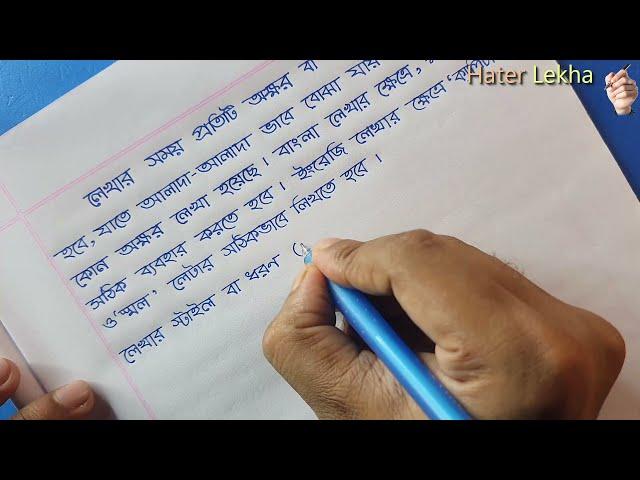 Hater Lekha
লেখার সময় প্রতিটি অক্ষর বা
হবে, যাতে আলাদা-আলাদা ভাবে বোঝা যায়
কোন অক্ষর লেখা হয়েছে। বাংলা লেখার ক্ষেত্রে,
সঠিক ব্যবহার করতে হবে। ইংরেজি লেখার ক্ষেত্রে
ও 'স্মল' লেটার সঠিকভাবে লিখতে হবে।
লেখার স্টাইল বা ধরণ